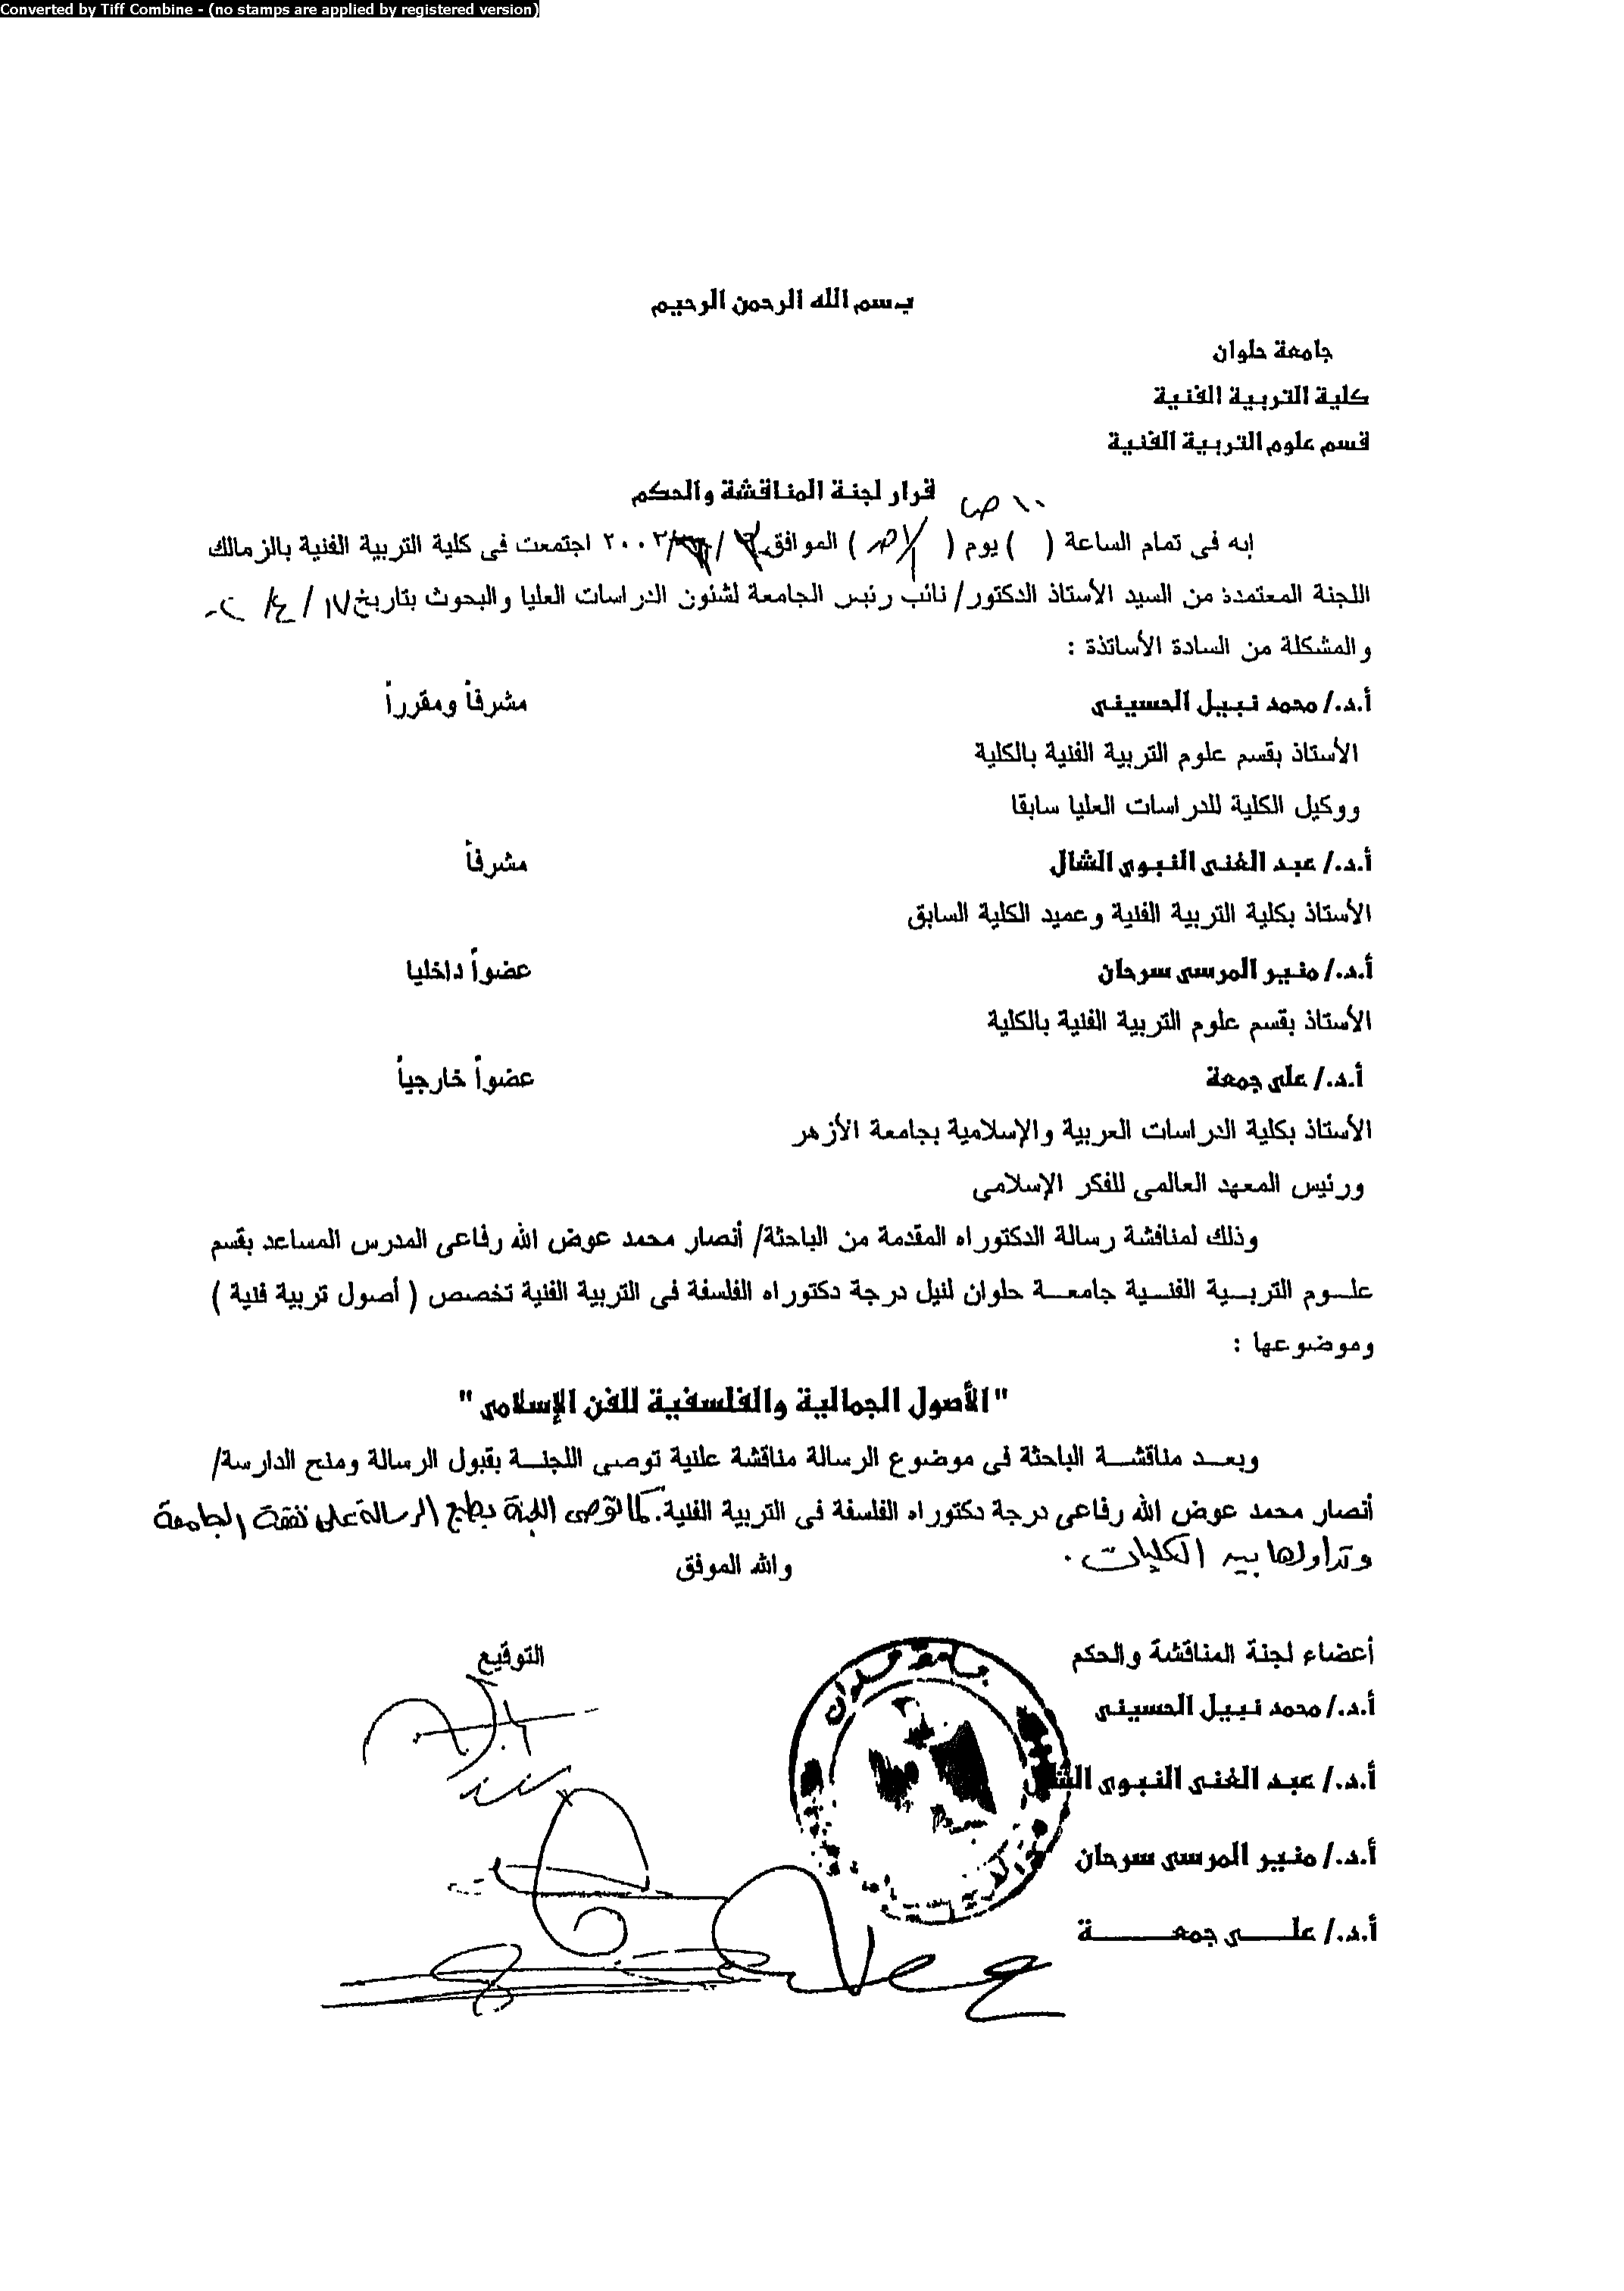 Converted by Tiff Combine - (no stamps are applied by registered version)
بسم الله الرحمن الرحيم
جامعة حلوان
كلية التربية الفنية
قسم علوم التربية الفنية
قرار لجنة المناقشة والحكم
إنه فى تمام الساعة ( ) يوم ( ) الموافق / / ٢٠٠٢ اجتمعت فى كلية التربية الفنية بالزمالك
اللجنة المعتمدة من السيد الأستاذ الدكتور/ نائب رئيس الجامعة لشئون الدراسات العليا والبحوث بتاريخ ١٧ / ٤ /
والمشكلة من السادة الأساتذة :
أ.د./ محمد نبيل الحسينى مشرفاً ومقرراً
الأستاذ بقسم علوم التربية الفنية بالكلية
ووكيل الكلية للدراسات العليا سابقا
أ.د./ عبد الغنى النبوى الشال مشرفاً
الأستاذ بكلية التربية الفنية وعميد الكلية السابق
أ.د./ منير المرسى سرحان عضواً داخليا
الأستاذ بقسم علوم التربية الفنية بالكلية
أ.د./ على جمعة عضواً خارجياً
الأستاذ بكلية الدراسات العربية والإسلامية بجامعة الأزهر
ورئيس المعهد العالمى للفكر الإسلامى
وذلك لمناقشة رسالة الدكتوراه المقدمة من الباحثة/ أنصار محمد عوض الله رفاعى المدرس المساعد بقسم
علـوم التربـية الفنـية جامعـة حلوان لنيل درجة دكتوراه الفلسفة فى التربية الفنية تخصص ( أصول تربية فنية )
وموضوعها :
" الأصول الجمالية والفلسفية للفن الإسلامى "
وبعـد مناقشـة الباحثة فى موضوع الرسالة مناقشة علنية توصى اللجنـة بقبول الرسالة ومنح الدارسة/
أنصار محمد عوض الله رفاعى درجة دكتوراه الفلسفة فى التربية الفنية. كما توصى اللجنة بطبع الرسالة على نفقة الجامعة
وتداولها بين الكليات .
والله الموفق
أعضاء لجنة المناقشة والحكم التوقيع
جامعة حلوان
أ.د./ محمد نبيل الحسينى
أ.د./ عبد الغنى النبوى الشال
أ.د./ منير المرسى سرحان
أ.د./ علـى جمعـة